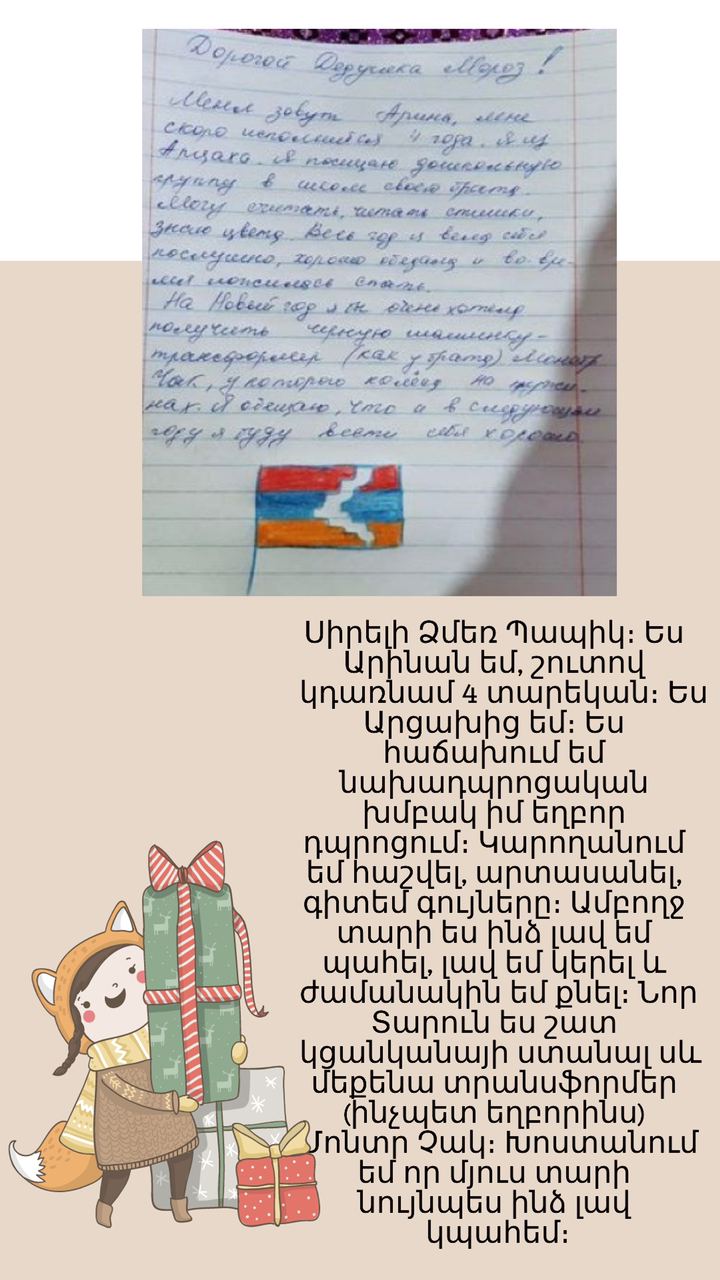 Дорогой Дедушка Мороз!
Меня зовут Арина, мне
скоро исполнится 4 года. Я из
Арцаха. Я посещаю дошкольную
группу в школе своего брата.
Могу считать, читать стишки,
знаю цвета. Весь год я вела себя
послушно, хорошо обедала и во вре-
мя ложилась спать.
На Новый год я бы очень хотела
получить черную машинку-
трансформер (как у брата) Монстр
Чак, у которого колёса на пружи-
нах. Я обещаю, что и в следующем
году я буду вести себя хорошо.
Սիրելի Ձմեռ Պապիկ։ Ես
Արինան եմ, շուտով
կդառնամ 4 տարեկան։ Ես
Արցախից եմ։ Ես
հաճախում եմ
նախադպրոցական
խմբակ իմ եղբոր
դպրոցում։ Կարողանում
եմ հաշվել, արտասանել,
գիտեմ գույները։ Ամբողջ
տարի ես ինձ լավ եմ
պահել, լավ եմ կերել և
ժամանակին եմ քնել։ Նոր
Տարուն ես շատ
կցանկանայի ստանալ սև
մեքենա տրանսֆորմեր
(ինչպետ եղբորինս)
Մոնտր Չակ։ Խոստանում
եմ որ մյուս տարի
նույնպես ինձ լավ
կպահեմ։